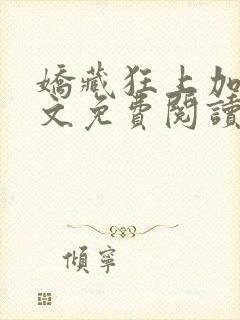 嬌藏狂上加
文免費閱讀
傾寧